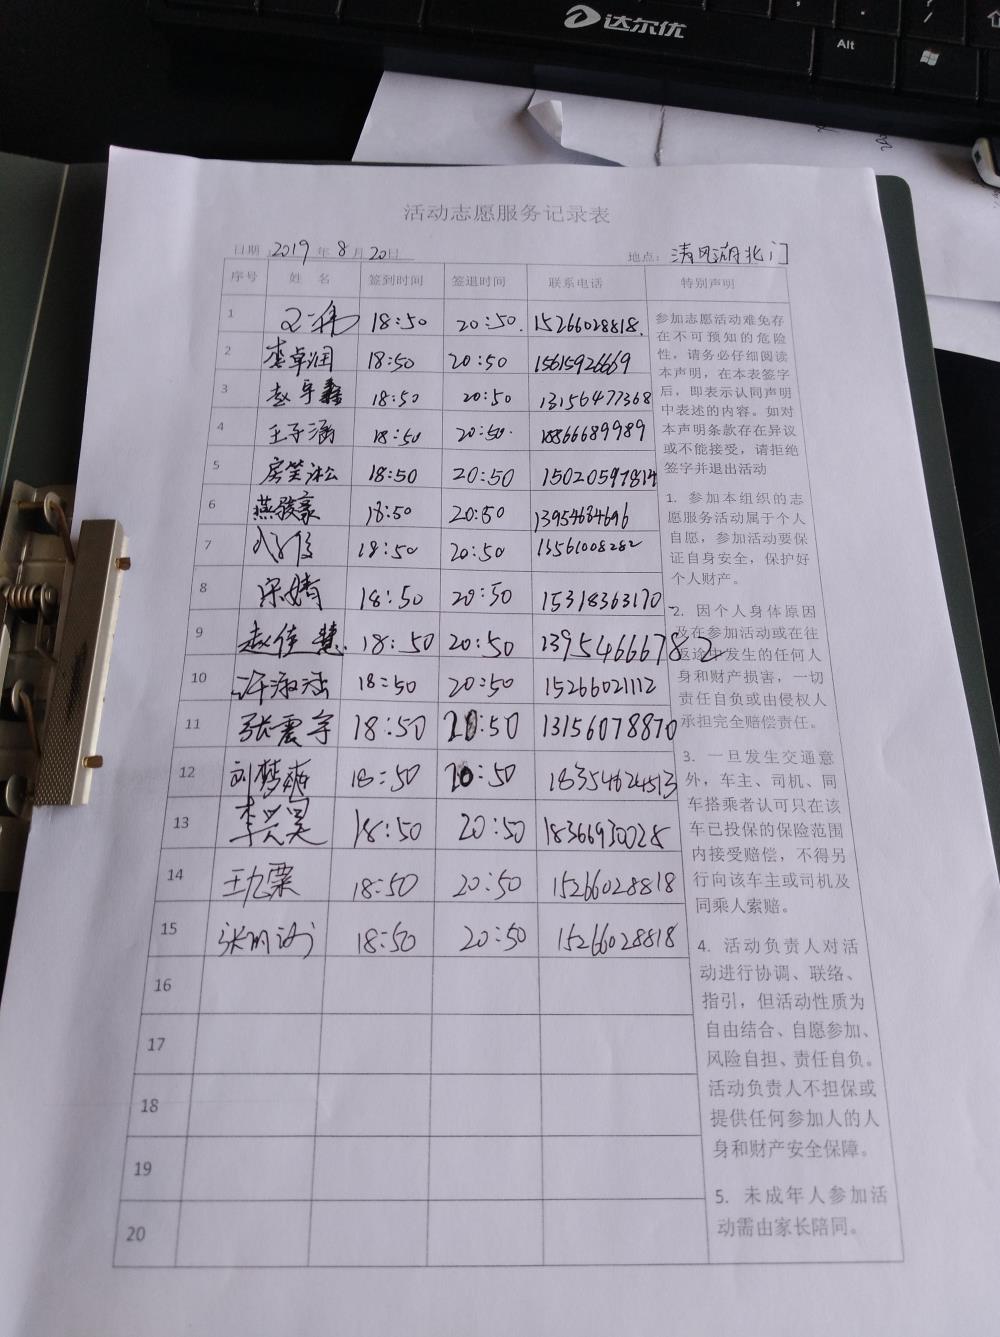 达尔优
Alt
活动志愿服务记录表
日期 2019 年 8 月 20 日 地点: 清风湖北门
序号 姓 名 签到时间 签退时间 联系电话 特别声明
1 18:50 20:50. 15266028818.
2 李卓润 18:50 20:50 15615926669
3 赵宇鑫 18:50 20:50 13156477368
4 王子涵 18:50 20:50. 18866689989
5 房笑淞 18:50 20:50 15020597814
6 燕骏豪 18:50 20:50 13954684696
7 18:50 20:50 13561008282
8 宋婧 18:50 20:50 15318363170
9 赵佳慧 18:50 20:50 13954666782
10 许淑 18:50 20:50 15266021112
11 张震宇 18:50 20:50 13156078870
12 刘梦爽 18:50 20:50 18354624513
13 李兴昊 18:50 20:50 18366930028
14 王九粟 18:50 20:50 15266028818
15 张明 18:50 20:50 15266028818
16
17
18
19
20
参加志愿活动难免存
在不可预知的危险
性，请务必仔细阅读
本声明，在本表签字
后，即表示认同声明
中表述的内容。如对
本声明条款存在异议
或不能接受，请拒绝
签字并退出活动
1. 参加本组织的志
愿服务活动属于个人
自愿，参加活动要保
证自身安全，保护好
个人财产。
2. 因个人身体原因
及在参加活动或在往
返途中发生的任何人
身和财产损害，一切
责任自负或由侵权人
承担完全赔偿责任。
3. 一旦发生交通意
外，车主、司机、同
车搭乘者认可只在该
车已投保的保险范围
内接受赔偿，不得另
行向该车主或司机及
同乘人索赔。
4. 活动负责人对活
动进行协调、联络、
指引，但活动性质为
自由结合、自愿参加、
风险自担、责任自负。
活动负责人不担保或
提供任何参加人的人
身和财产安全保障。
5. 未成年人参加活
动需由家长陪同。